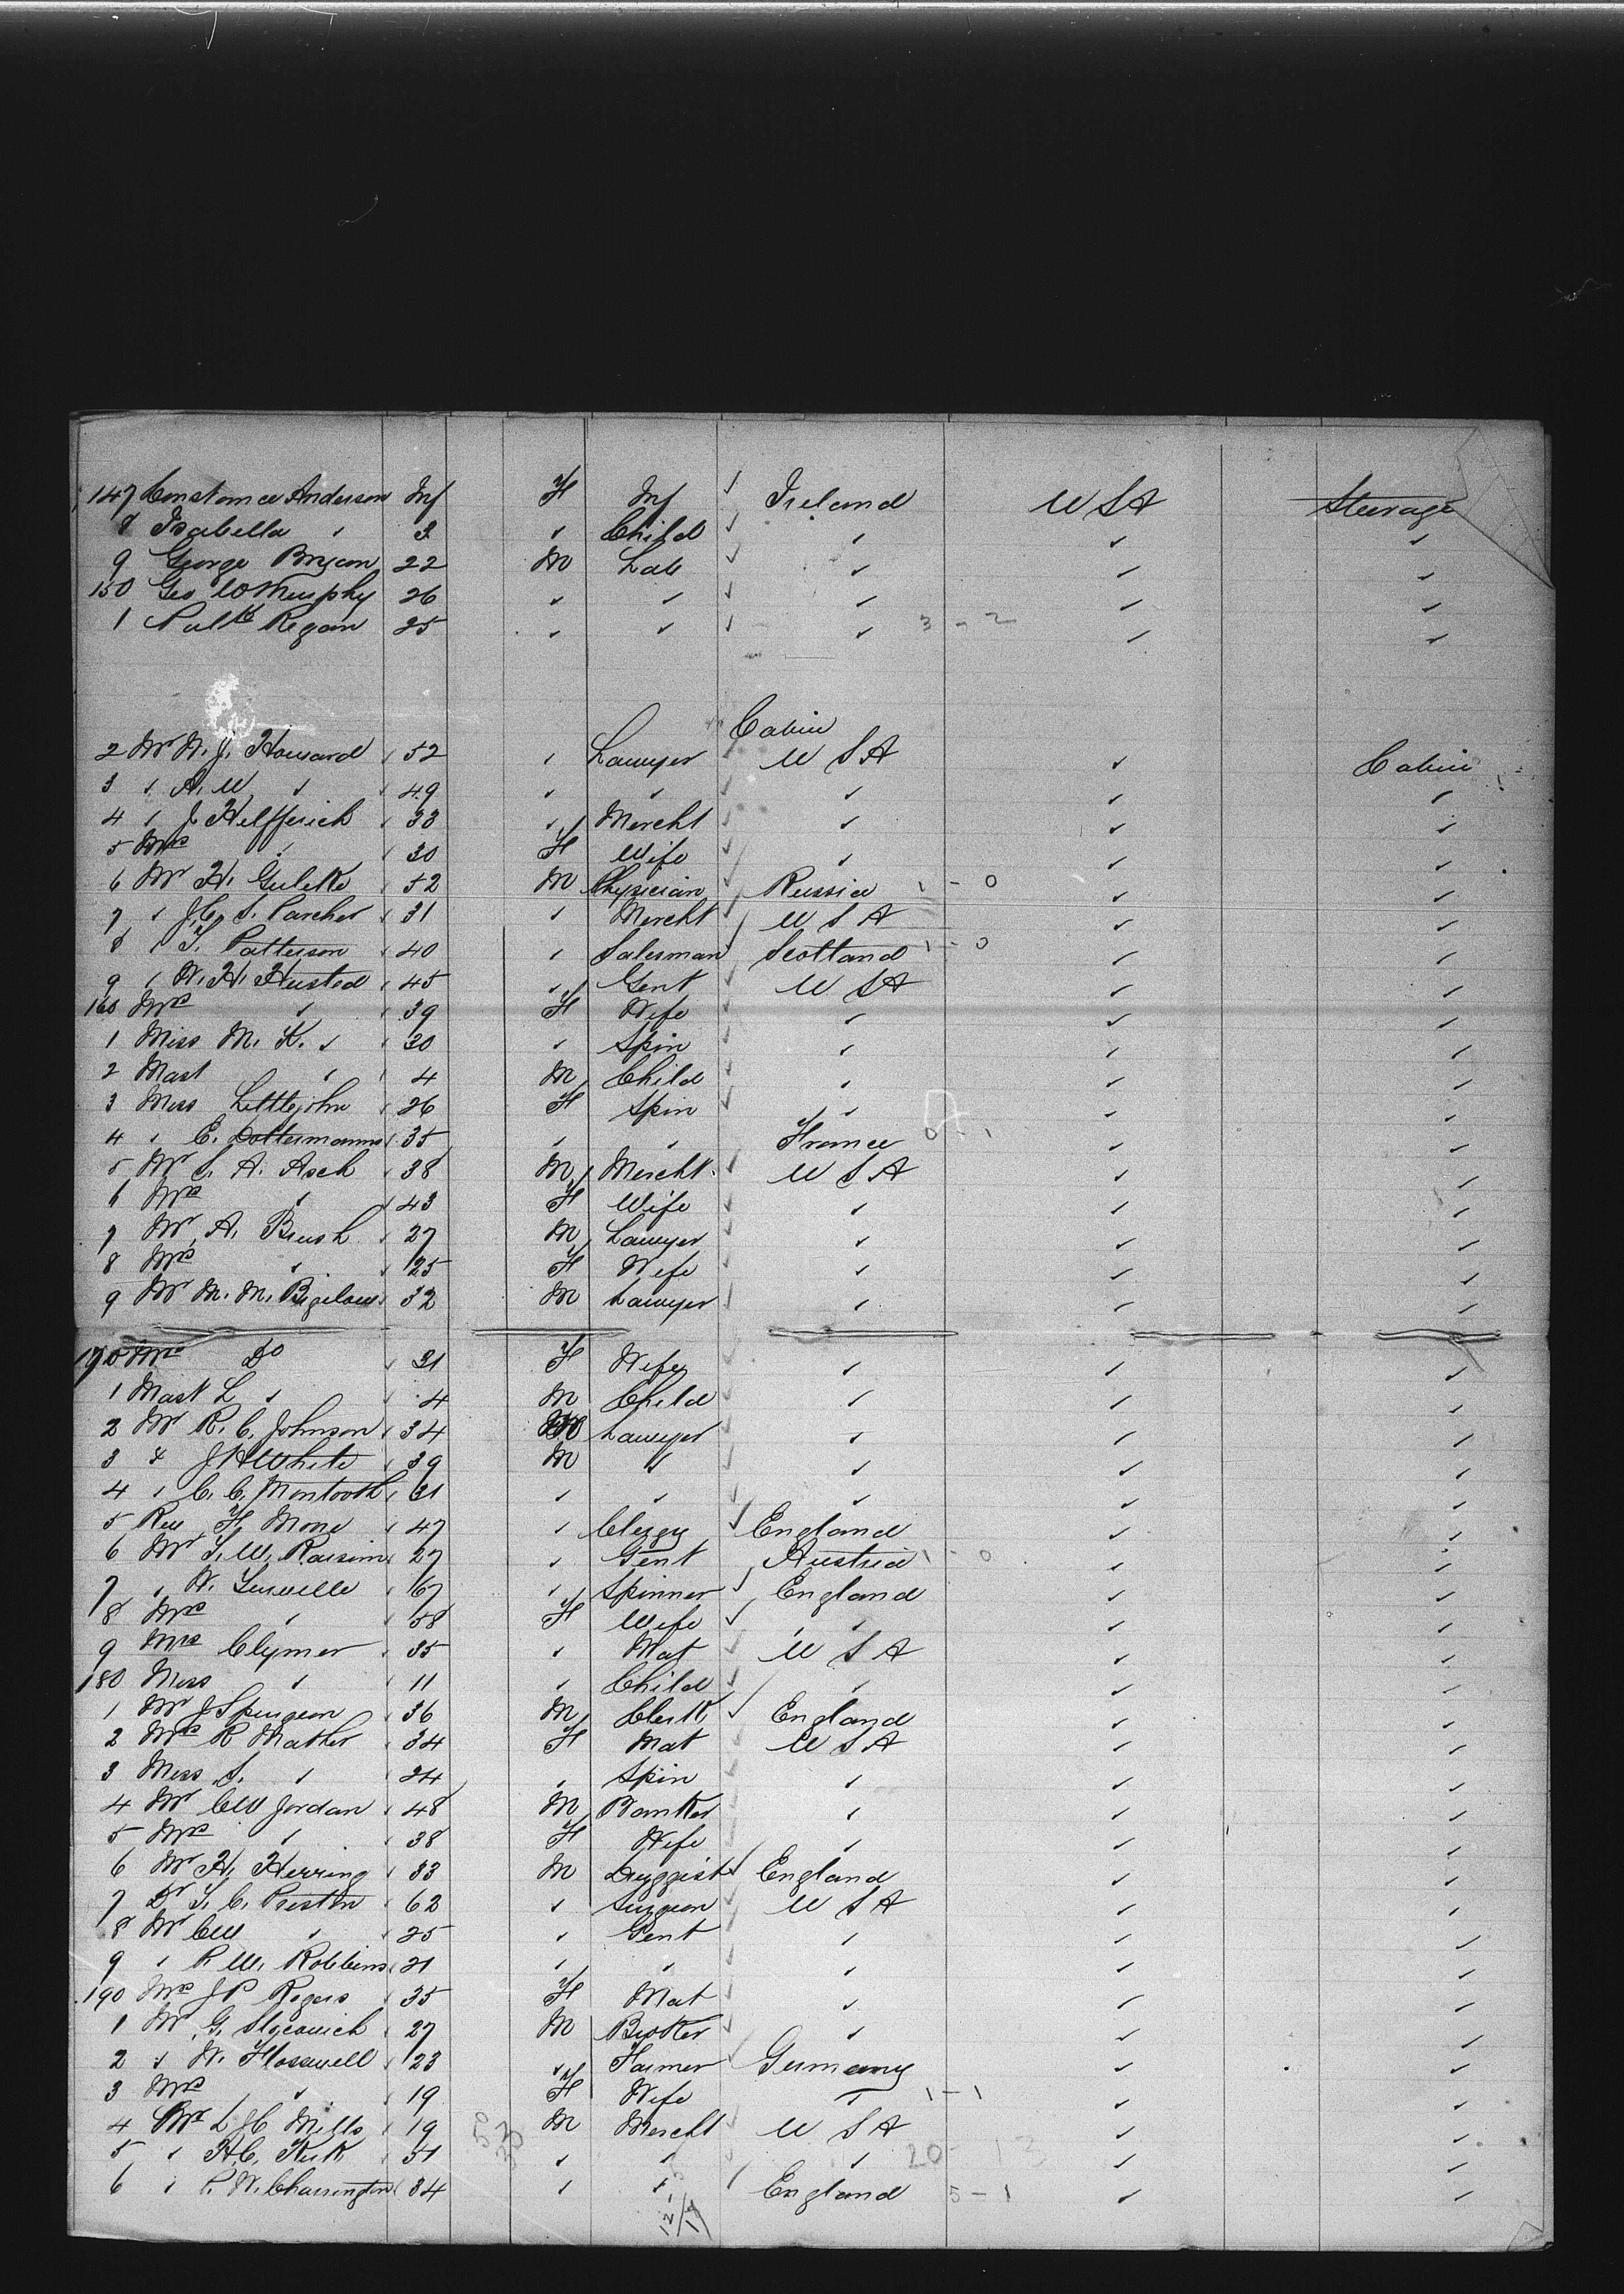 147 Constance Anderson Inf F Inf ✓ Ireland USA Steerage
8 Isabella " 3 " Child ✓ " " "
9 George Bryan 22 M Lab ✓ " " "
150 Geo W Murphy 26 " " ✓ " " "
1 Patk Regan 25 " " ✓ " 3 - 2 " "
Cabin
2 Mr W. J. Howard " 52 " Lawyer USA " Cabin
3 " A. W. " " 49 " " " " "
4 " J Helfferich " 33 " Mercht " " "
5 Mrs " " 30 F Wife ✓ " " "
6 Mr H. " 52 M Physician ✓ Russia 1 - 0 " "
7 " J.C. S. Parcher " 31 " Mercht ✓ USA " "
8 " T. Patterson " 40 " Salesman ✓ Scotland 1 - 0 " "
9 " W. H. Husted " 45 " Gent ✓ USA " "
160 Mrs " " 39 F Wife " " "
1 Miss M. K. " " 30 " Spin " " "
2 Mast " " 4 M Child ✓ " " "
3 Miss Littlejohn " 26 F Spin ✓ " " "
4 " E. " 35 " " France " "
5 Mr S. A. Asch " 38 M Mercht ✓ USA " "
6 Mrs " " 43 F Wife ✓ " " "
7 Mr A. Brush " 27 M Lawyer " " "
8 Mrs " " 25 F Wife " " "
9 Mr M. M. Bigelow " 32 M Lawyer " " "
170 Mrs Do " 31 F Wife " " "
1 Mast L " " 4 M Child " " "
2 Mr R. C. Johnson " 34 M Lawyer " " "
3 " J H White " 39 M " " " "
4 " C. C. Montooth " 31 " " ✓ " " "
5 Rev F. " 47 " Clergy ✓ England " "
6 Mr S. W. " 27 " Gent Austria 1 - 0 " "
7 " W. " 67 " Spinner ✓ England " "
8 Mrs " " 58 F Wife ✓ " " "
9 Mrs Clymer " 35 " Mat ✓ USA " "
180 Miss " " 11 " Child ✓ " " "
1 Mr J Spurgeon " 36 M Clerk ✓ England " "
2 Mrs R Mather " 34 F Mat USA " "
3 Miss S. " " 24 " Spin ✓ " " "
4 Mr CW Jordan " 48 M Banker " " "
5 Mrs " " 38 F Wife " " "
6 Mr H. Herring " 33 M Druggist ✓ England " "
7 Dr S. C. Preston " 62 " Surgeon USA " "
8 Mr CW " " 25 " Gent ✓ " " "
9 " R. W. Robbins " 21 " " " " "
190 Mrs J P Rogers " 35 F Mat ✓ " " "
1 Mr G. " 27 M Broker ✓ " " "
2 " W. " 23 " Farmer Germany " "
3 Mrs " " 19 F Wife " 1 - 1 " "
4 Mr L J C Mills " 19 M Mercht ✓ USA " "
5 " H.C. Kirk " 51 " " " 20 - 13 " "
6 " P. W. Charrington " 34 " " ✓ England 5 - 1 " "